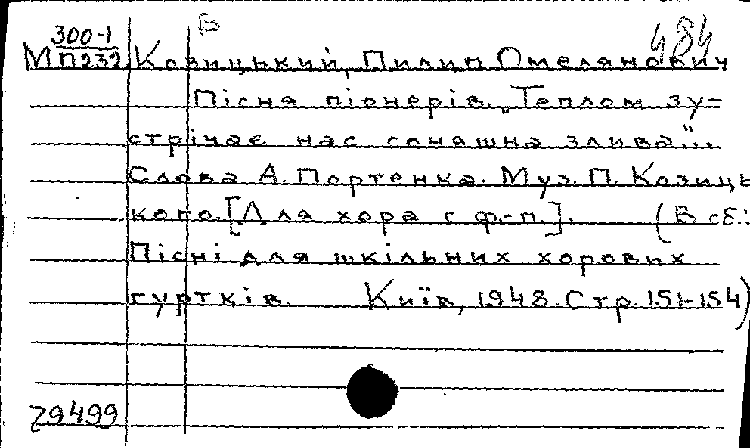 Б
484
300-1
МП232 Козицький, Пилип Омелянович
Пісня піонерів „Теплом зу-
стрічає нас сонячна злива"...
Слова А. Портенка. Муз. П. Козиць-
кого. [Для хора с ф.-п.]. (В сб.:
Пісні для шкільних хорових
гуртків. Київ, 1948. Стр. 151-154)
79499